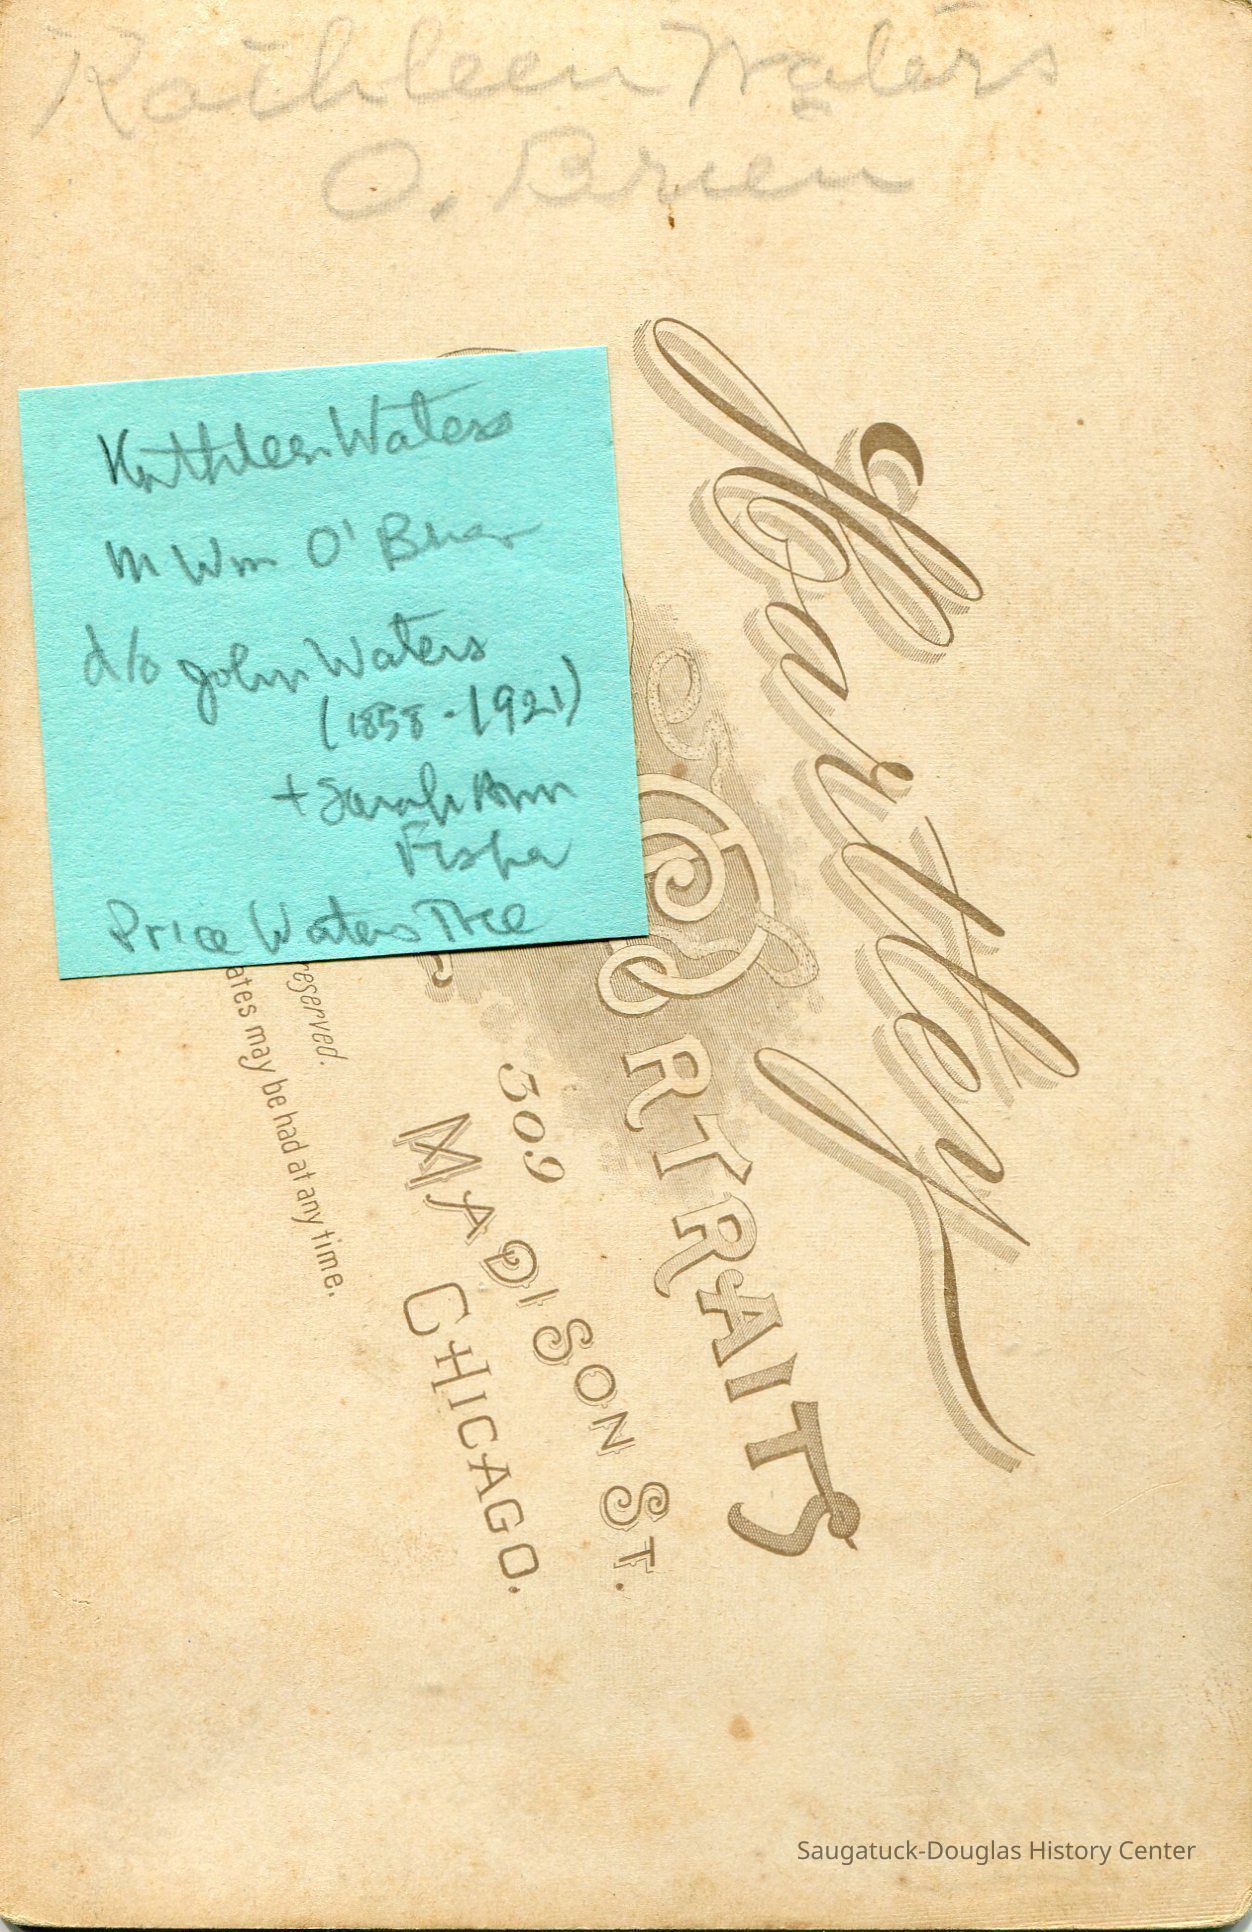 Kathleen Waters
O. Brien
Kathleen Waters
m Wm O' Brien
d/o John Waters
(1858 - 1921)
+ Sarah Ann
Fisher
Price Waters Tree
Hartley
PORTRAITS
309
MADISON ST.
CHICAGO.
reserved.
ates may be had at any time.
Saugatuck-Douglas History Center